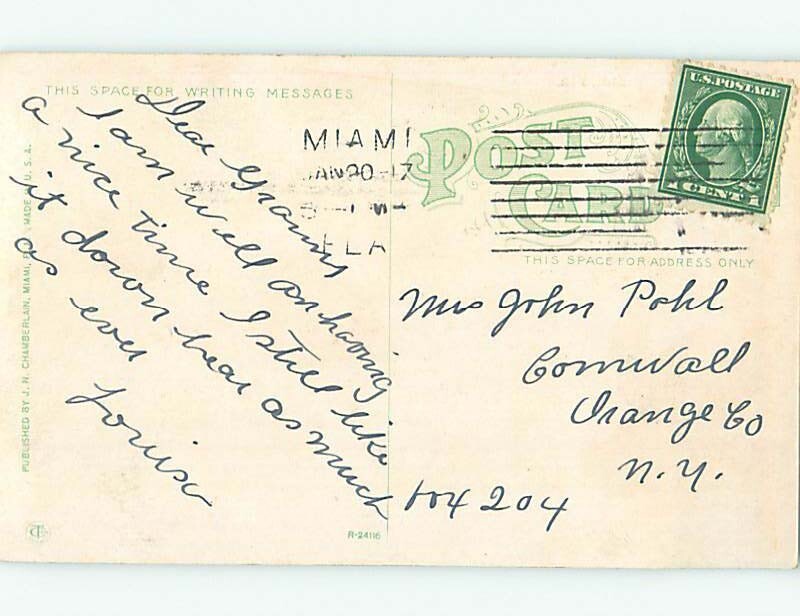 THIS SPACE FOR WRITING MESSAGES
Dear Granny
I am well an having
a nice time I still like
it down hear as much
as ever
Louise
PUBLISHED BY J. N. CHAMBERLAIN, MIAMI, FLA. MADE IN U. S. A.
R-24116
MIAMI
JAN 20 17
FLA
POST
CARD
U.S. POSTAGE
1 CENT 1
THIS SPACE FOR ADDRESS ONLY
Mrs John Pohl
Cornwall
Orange Co
N. Y.
204